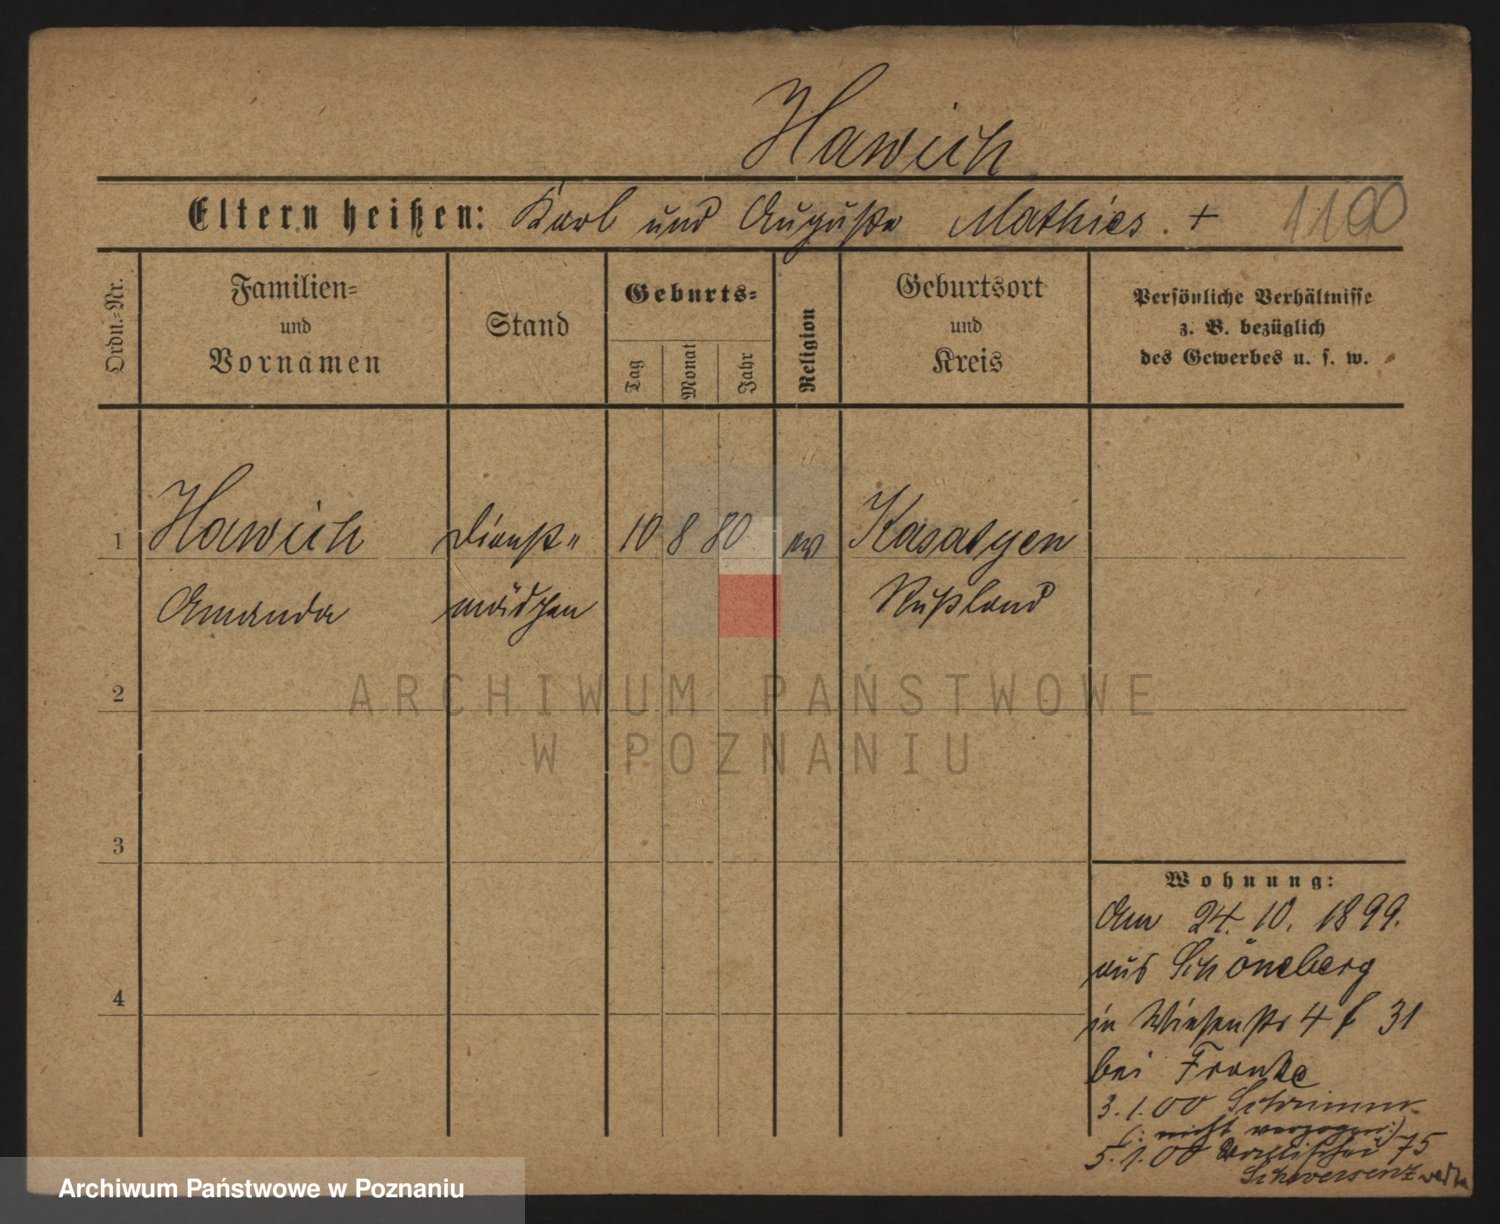 Hawich
Eltern heißen: Karl und Auguste Mathies. + 1100
Ordn.-Nr.
Familien-
und
Vornamen
Stand
Geburts-
Tag
Monat
Jahr
Religion
Geburtsort
und
Kreis
Persönliche Verhältnisse
z. B. bezüglich
des Gewerbes u. s. w.
1 Hawich Dienst- 10 8 80 ev Kasatyen
Amanda mädchen Rußland
2
ARCHIWUM PAŃSTWOWE
W POZNANIU
3
Wohnung:
Am 24. 10. 1899.
aus Schöneberg
4
in Wiesenstr 4 f 31
bei Franke
3.1.00 Schrimm
(: nicht verzogen:)
5.1.00 75
Schwersenz
Archiwum Państwowe w Poznaniu